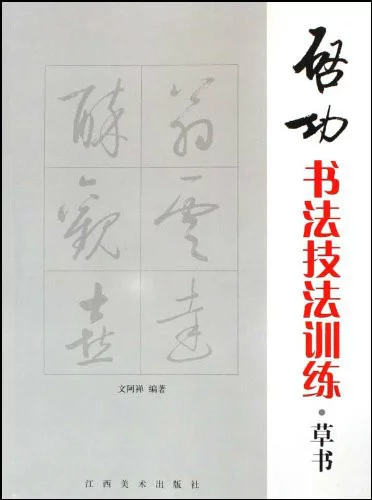 启功
书法技法训练·草书
文阿禅 编著
江西美术出版社